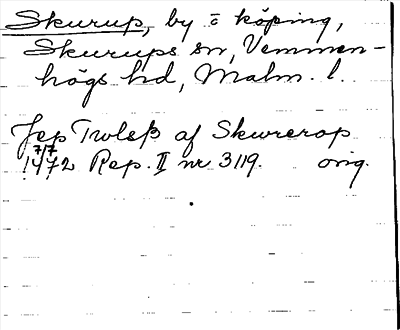 Skurup, by oköping,
Skurups sn, Vemmen-
högs hd, Malm. l.
Jep Twlsß af Skurerop
7/7
1472 Rep. II nr 3119. orig.